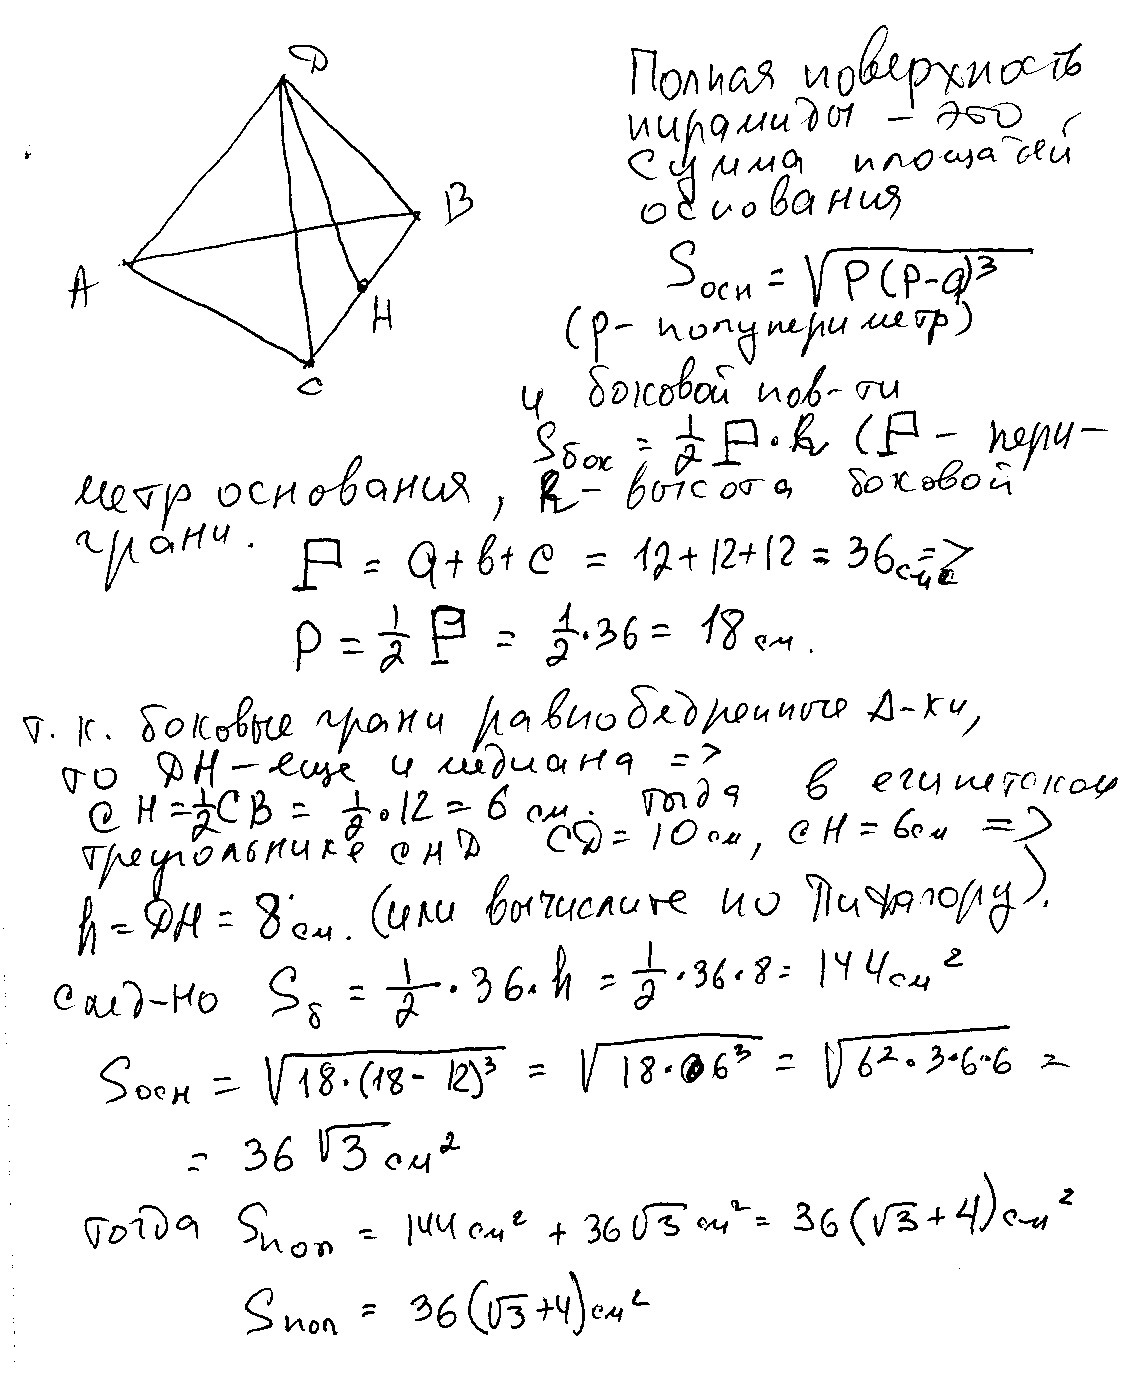 D
B
A
H
C
Полная поверхность
пирамиды – это
сумма площадей
основания
Sосн = √(p(p-a)³)
(p - полупериметр)
и боковой пов-ти
Sбок = 1/2 P · h (P - пери-
метр основания, h - высота боковой
грани.
P = a + b + c = 12 + 12 + 12 = 36 см =>
p = 1/2 P = 1/2 · 36 = 18 см.
т. к. боковые грани равнобедренные Δ-ки,
то DH - еще и медиана =>
CH = 1/2 CB = 1/2 · 12 = 6 см. тогда в египетском
треугольнике CHD CD = 10 см, CH = 6 см =>
h = DH = 8 см. (или вычислите по Пифагору).
след-но Sб = 1/2 · 36 · h = 1/2 · 36 · 8 = 144 см²
Sосн = √(18 · (18 - 12)³) = √(18 · 6³) = √(6² · 3 · 6 · 6) =
= 36 √3 см²
тогда Sпол = 144 см² + 36√3 см² = 36(√3 + 4) см²
Sпол = 36(√3 + 4) см²